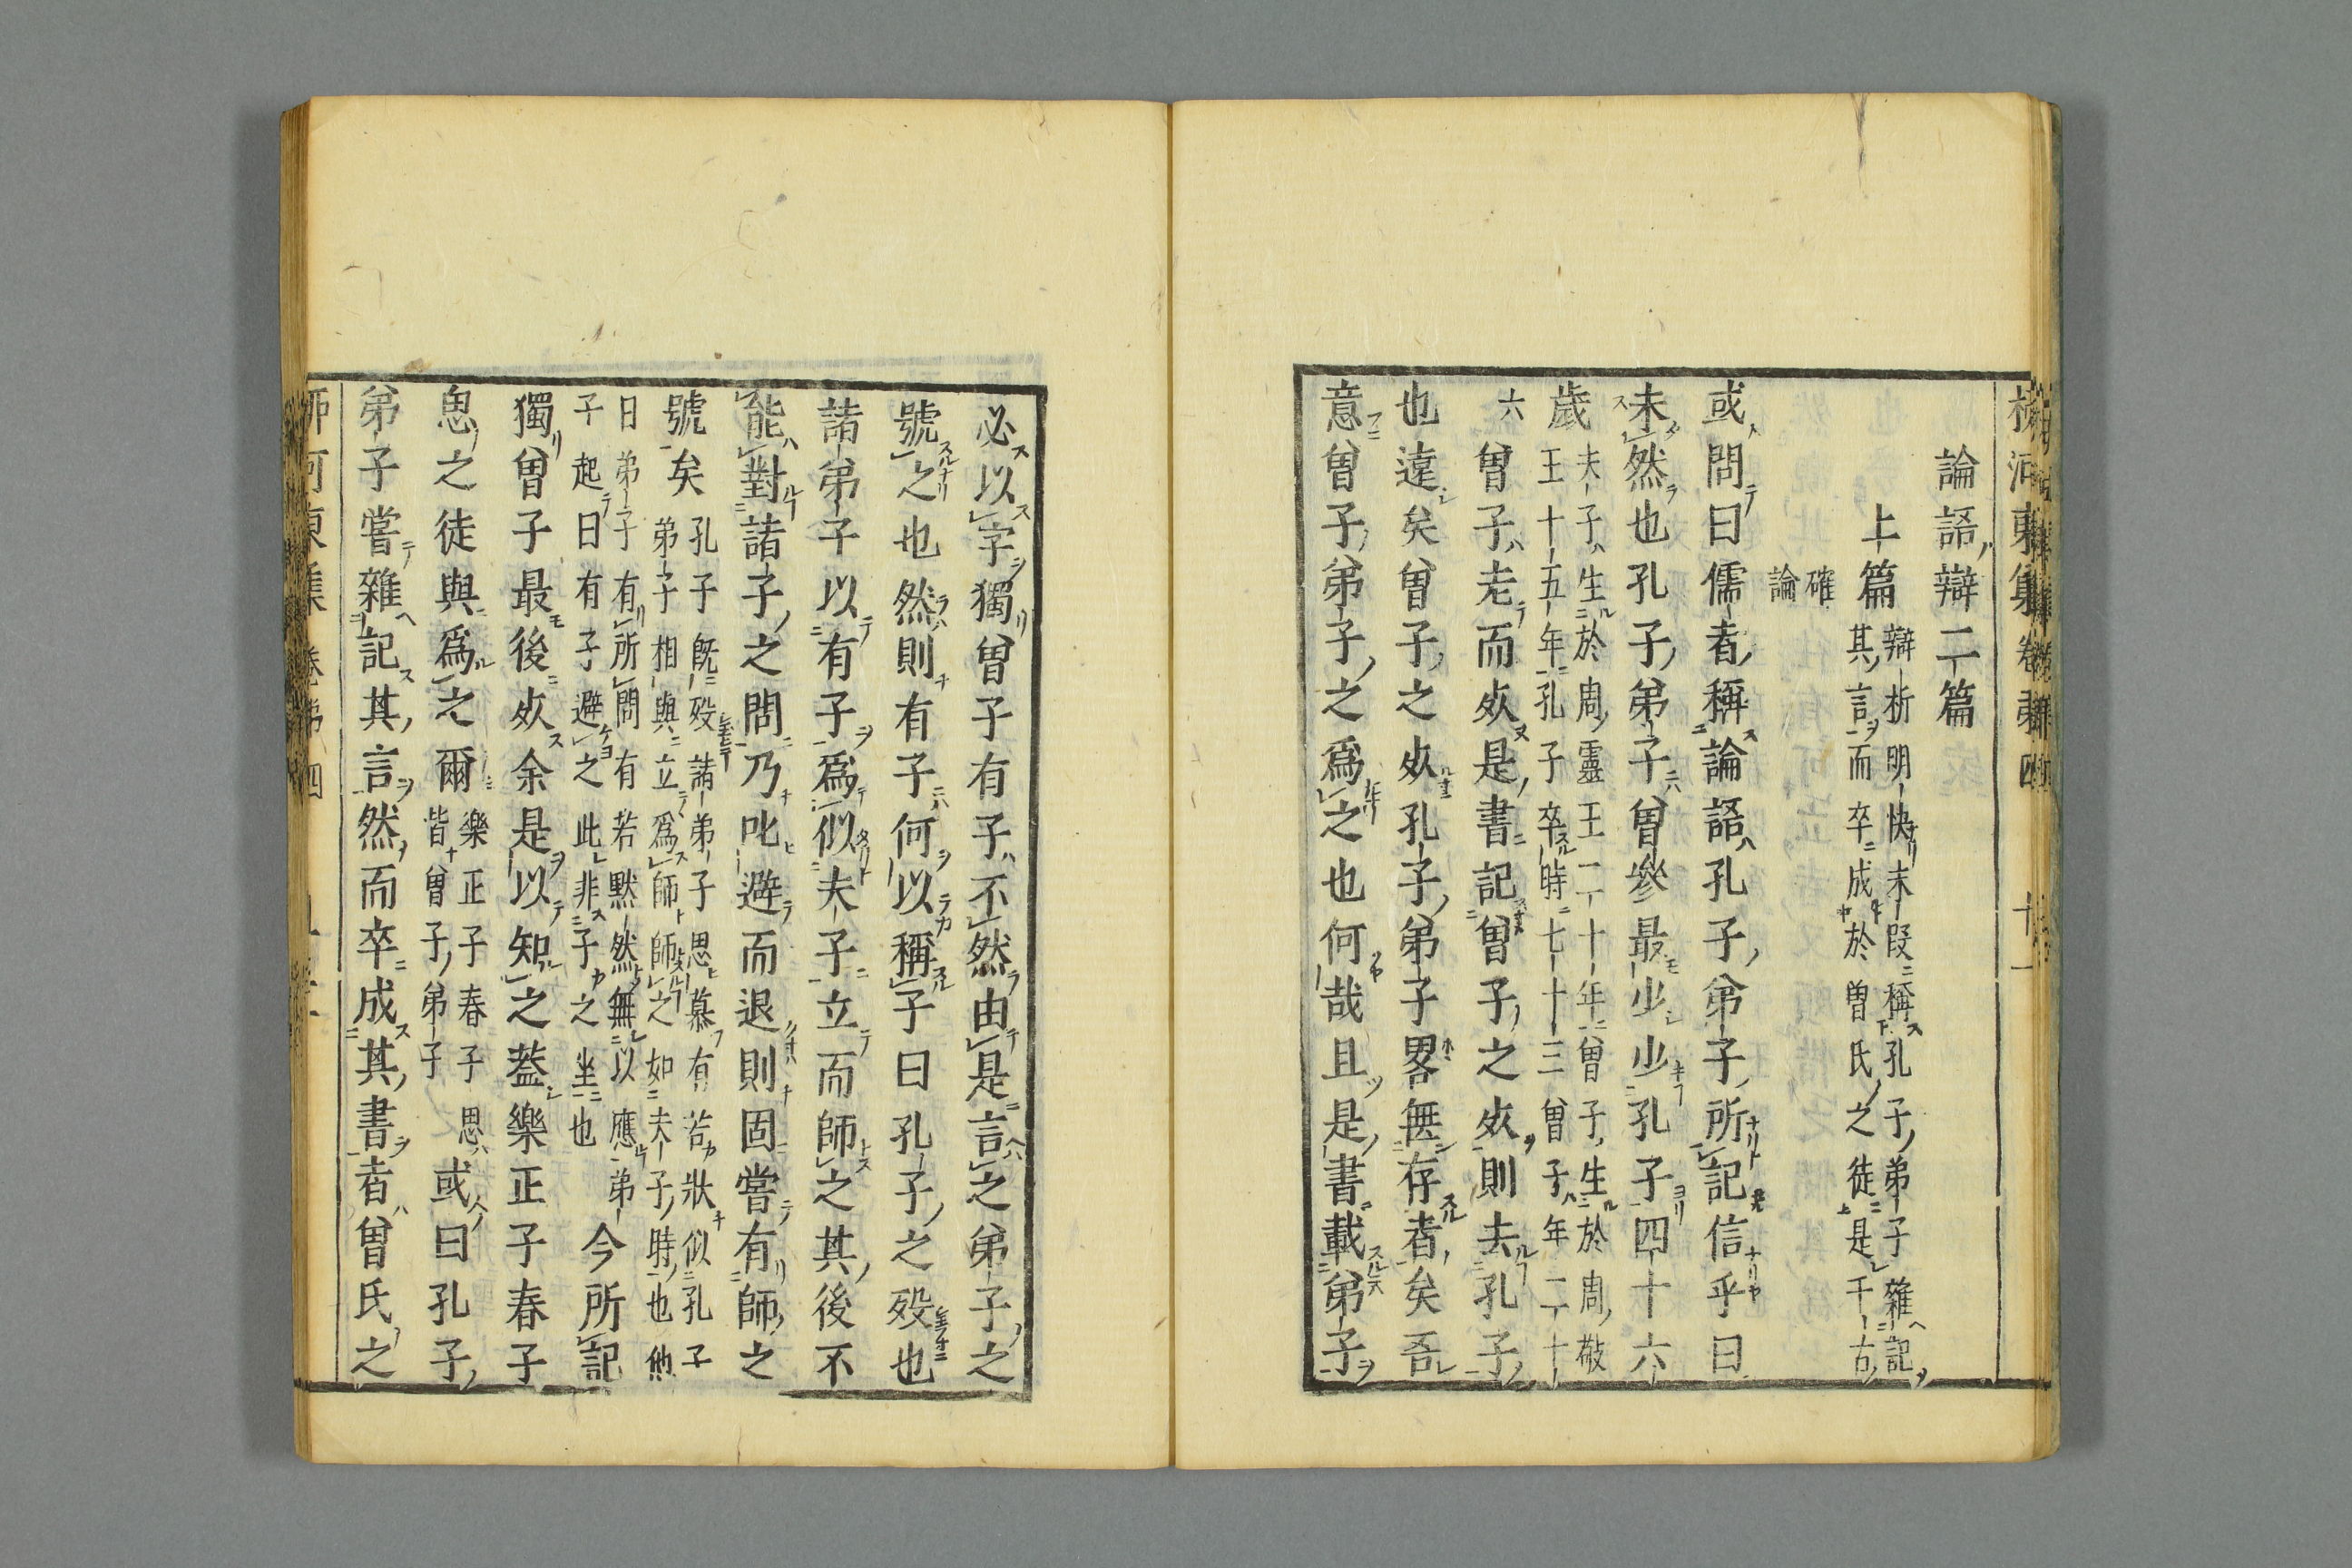 河東集卷第四 十一
論語辯二篇
上篇 辯析明快末段稱孔子弟子雜記
其言而卒成於曽氏之徒是千古
確
論
或問曰儒者稱論語孔子弟子所記信乎曰
未然也孔子弟子曾參最少少孔子四十六
歲 夫子生於周靈王二十年曾子生於周敬
王十五年孔子卒時七十三曾子年二十
六 曾子老而死是書記曾子之死則去孔子
也遠矣曾子之死孔子弟子畧無存者矣吾
意曾子弟子之爲之也何哉且是書載弟子
必以字獨曾子有子不然由是言之弟子之
號之也然則有子何以稱子曰孔子之歿也
諸弟子以有子爲似夫子立而師之其後不
能對諸子之問乃叱避而退則固嘗有師之
號矣 孔子既歿諸弟子思慕有若狀似孔子
弟子相與立爲師師之如夫子時也他
日弟子有所問有若默然無以應弟
子起曰有子避之此非子之坐也 今所記
獨曾子最後死余是以知之蓋樂正子春子
思之徒與爲之爾 樂正子春子思
皆曾子弟子 或曰孔子
弟子嘗雜記其言然而卒成其書者曾氏之
河東集卷第四